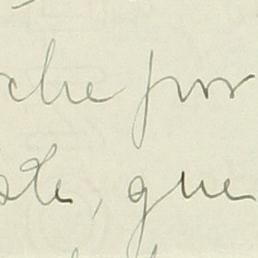 che por
ste, que